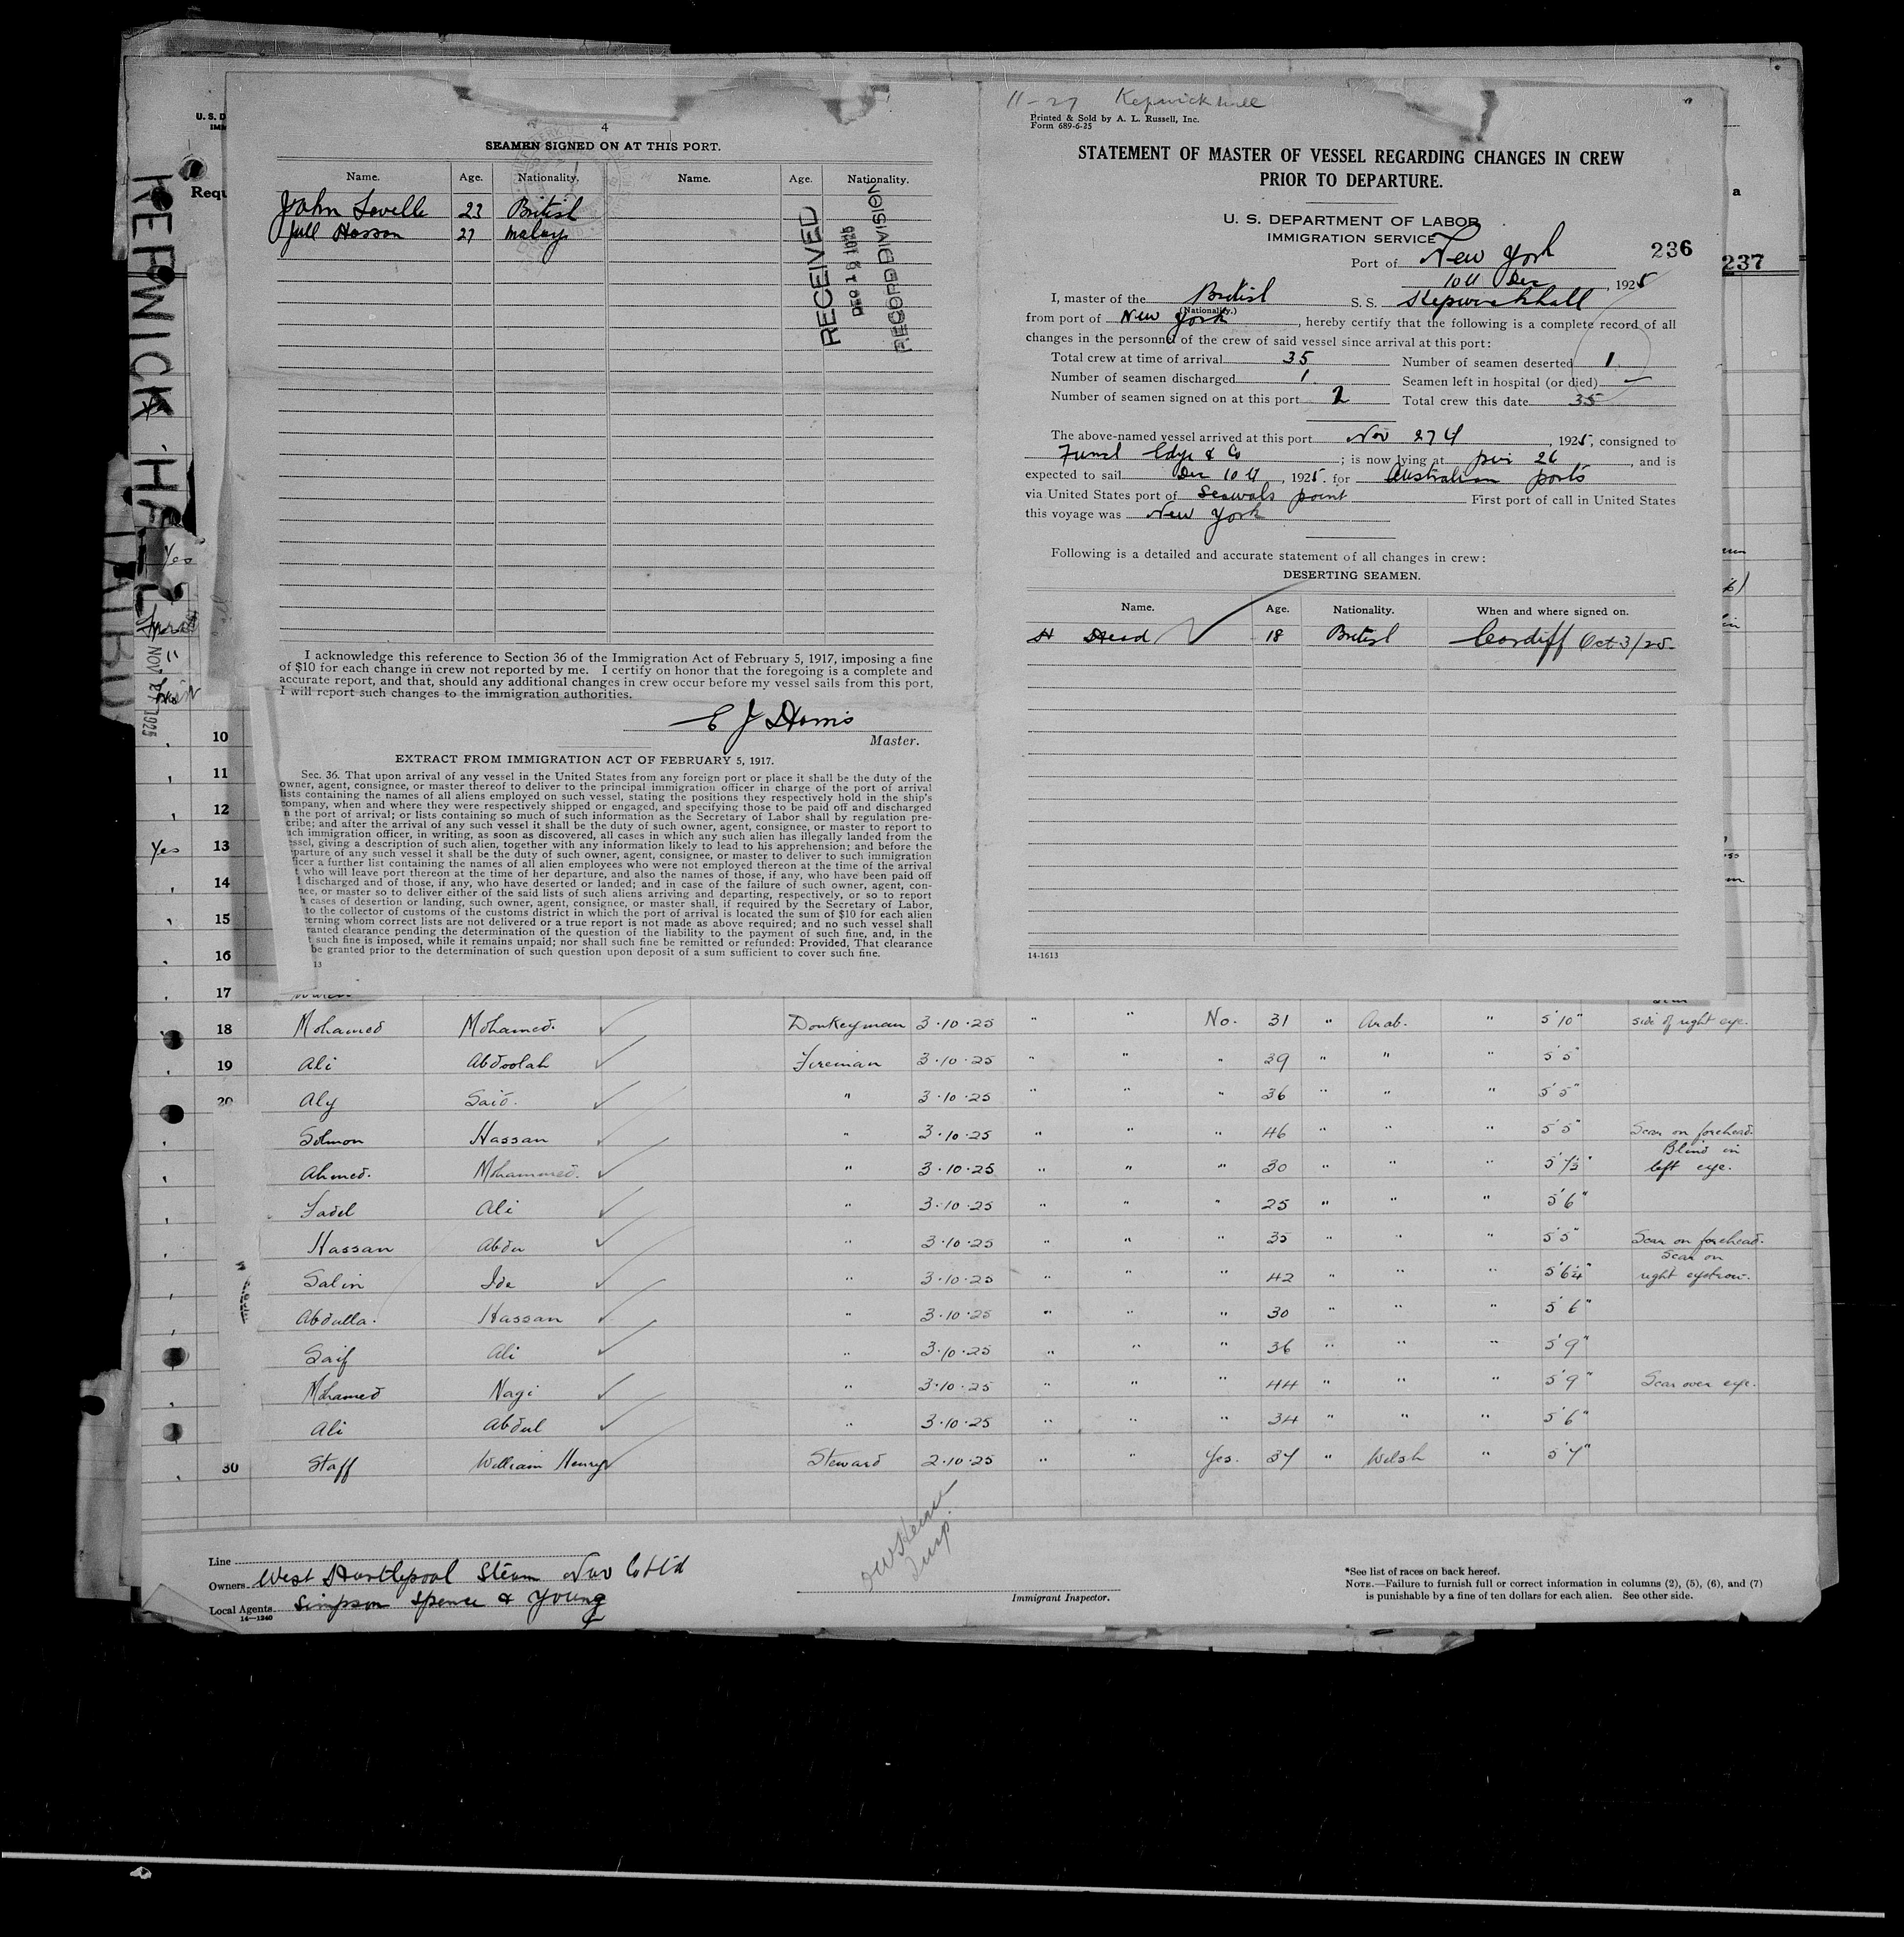 U. S. D
IMM
Requ
KEPWICK HALL
Yes
NOV 27 1925
10
11
12
Yes 13
14
15
16
17
4
SEAMEN SIGNED ON AT THIS PORT.
Name. Age. Nationality. Name. Age. Nationality.
John Lovelle 23 British
Jull Hassan 27 Malay
RECEIVED
DEC 18 1925
RECORD DIVISION
I acknowledge this reference to Section 36 of the Immigration Act of February 5, 1917, imposing a fine
of $10 for each change in crew not reported by me. I certify on honor that the foregoing is a complete and
accurate report, and that, should any additional changes in crew occur before my vessel sails from this port,
I will report such changes to the immigration authorities.
E J Harris
Master.
EXTRACT FROM IMMIGRATION ACT OF FEBRUARY 5, 1917.
Sec. 36. That upon arrival of any vessel in the United States from any foreign port or place it shall be the duty of the
owner, agent, consignee, or master thereof to deliver to the principal immigration officer in charge of the port of arrival
lists containing the names of all aliens employed on such vessel, stating the positions they respectively hold in the ship's
company, when and where they were respectively shipped or engaged, and specifying those to be paid off and discharged
n the port of arrival; or lists containing so much of such information as the Secretary of Labor shall by regulation pre-
cribe; and after the arrival of any such vessel it shall be the duty of such owner, agent, consignee, or master to report to
uch immigration officer, in writing, as soon as discovered, all cases in which any such alien has illegally landed from the
essel, giving a description of such alien, together with any information likely to lead to his apprehension; and before the
parture of any such vessel it shall be the duty of such owner, agent, consignee, or master to deliver to such immigration
ficer a further list containing the names of all alien employees who were not employed thereon at the time of the arrival
t who will leave port thereon at the time of her departure, and also the names of those, if any, who have been paid off
l discharged and of those, if any, who have deserted or landed; and in case of the failure of such owner, agent, con-
nee, or master so to deliver either of the said lists of such aliens arriving and departing, respectively, or so to report
h cases of desertion or landing, such owner, agent, consignee, or master shall, if required by the Secretary of Labor,
to the collector of customs of the customs district in which the port of arrival is located the sum of $10 for each alien
erning whom correct lists are not delivered or a true report is not made as above required; and no such vessel shall
ranted clearance pending the determination of the question of the liability to the payment of such fine, and, in the
t such fine is imposed, while it remains unpaid; nor shall such fine be remitted or refunded: Provided, That clearance
be granted prior to the determination of such question upon deposit of a sum sufficient to cover such fine.
13
11-27 Kepwickhall
Printed & Sold by A. L. Russell, Inc.
Form 689-6-25
STATEMENT OF MASTER OF VESSEL REGARDING CHANGES IN CREW
PRIOR TO DEPARTURE.
U. S. DEPARTMENT OF LABOR
IMMIGRATION SERVICE
236
237
Port of New York
10th Dec, 1925
I, master of the British S. S. Kepwickhall
(Nationality.)
from port of New York, hereby certify that the following is a complete record of all
changes in the personnel of the crew of said vessel since arrival at this port:
Total crew at time of arrival 35 Number of seamen deserted 1
Number of seamen discharged 1. Seamen left in hospital (or died) —
Number of seamen signed on at this port 2 Total crew this date 35
The above-named vessel arrived at this port Nov 27th, 1925, consigned to
Edye & Co; is now lying at pier 26, and is
expected to sail Dec 10th, 1925. for Australian ports
via United States port of Sewals point First port of call in United States
this voyage was New York
Following is a detailed and accurate statement of all changes in crew:
DESERTING SEAMEN.
Name. Age. Nationality. When and where signed on.
H Head 18 British Cardiff Oct 3/25.
14-1613
18 Mohamed Mohamed. Donkeyman 3.10.25 " " No. 31 " Arab. " 5'10" side of right eye.
19 Ali Abdoolah Fireman 3.10.25 " " " 39 " " " 5'5"
20 Aly Said. " 3.10.25 " " " 36 " " " 5'5"
Solmon Hassan " 3.10.25 " " " 46 " " " 5'5" Scar on forehead.
Ahmed. Mohammed. " 3.10.25 " " " 30 " " " 5'7½" Blind in left eye.
Fadel Ali " 3.10.25 " " " 25 " " " 5'6"
Hassan Abdu " 3.10.25 " " " 35 " " " 5'5" Scar on forehead.
Salin Ide " 3.10.25 " " " 42 " " " 5'6¼" Scar on right eyebrow.
Abdulla. Hassan " 3.10.25 " " " 30 " " " 5'6"
Saif Ali " 3.10.25 " " " 36 " " " 5'9"
Mohamed Nagi " 3.10.25 " " " 44 " " " 5'9" Scar over eye.
Ali Abdul " 3.10.25 " " " 34 " " " 5'6"
30 Staff William Henry Steward 2.10.25 " " Yes. 37 " Welsh " 5'7"
Line
Owners West Hartlepool Steam Nav Co Ltd
Local Agents Simpson Spence & Young
14-1240
Insp.
Immigrant Inspector.
*See list of races on back hereof.
NOTE.—Failure to furnish full or correct information in columns (2), (5), (6), and (7)
is punishable by a fine of ten dollars for each alien. See other side.